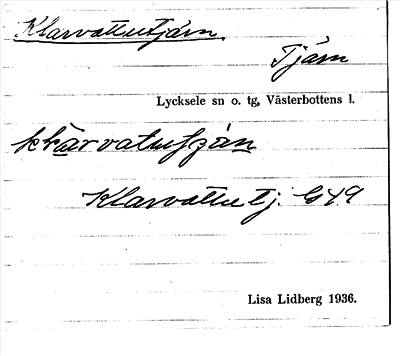 Klarvattutjärn
Tjärn
Lycksele sn o. tg, Västerbottens l.
Klarvattutj. G49
Lisa Lidberg 1936.